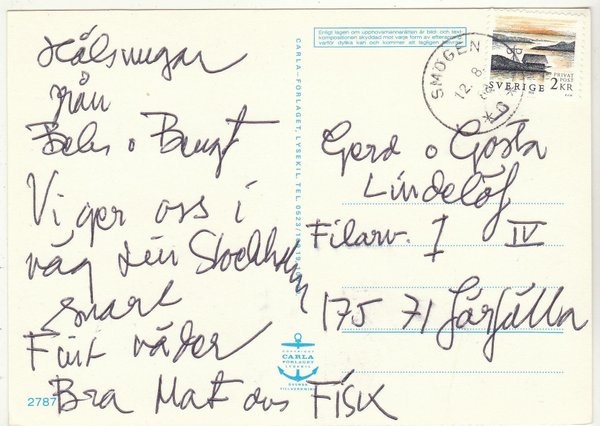 Hälsningar
från
Beles o Bengt
Vi ger oss i
väg till Stockholm
snart
Fint väder
Bra Mat oxs FISK
2787
CARLA-FÖRLAGET, LYSEKIL TEL 0523/
COPYRIGHT
CARLA
FÖRLAGET
LYSEKIL
Enligt lagen om upphovsmannarätten är bild- och text-
kompositionen skyddad mot varje form av
varför dylika kan och kommer att lagligen
SMÖGEN
12.8.
SVERIGE
PRIVAT
POST
2KR
Gerd o Gösta
Lindelöf
Filarv. 1 IV
175 71 Järfälla